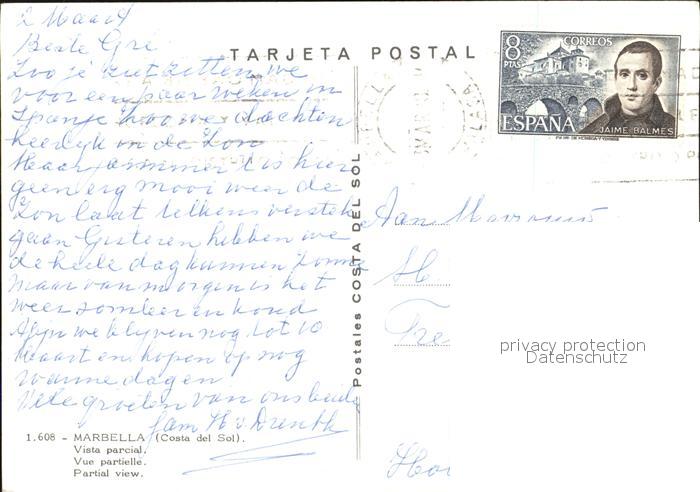 2 Maart
Beste Gré
Zoo je ziet zitten we
voor een paar weken in
Spanje zoo we dachten
heerlijk in de Zon
Maar jammer 't is hier
geen erg mooi weer de
Zon laat telkens verstek
gaan Gisteren hebben we
de heele dag kunnen zonne
maar van morgen is het
weer somber en koud
Afijn we blijven nog tot 10
Maart en hopen op nog
warme dagen
Vele groeten van ons beide
fam H v Drenth
TARJETA POSTAL
Postales COSTA DEL SOL
1.608 - MARBELLA (Costa del Sol).
Vista parcial.
Vue partielle.
Partial view.
8
PTAS
CORREOS
ESPAÑA
JAIME BALMES
Aan
H
Fre
privacy protection
Datenschutz